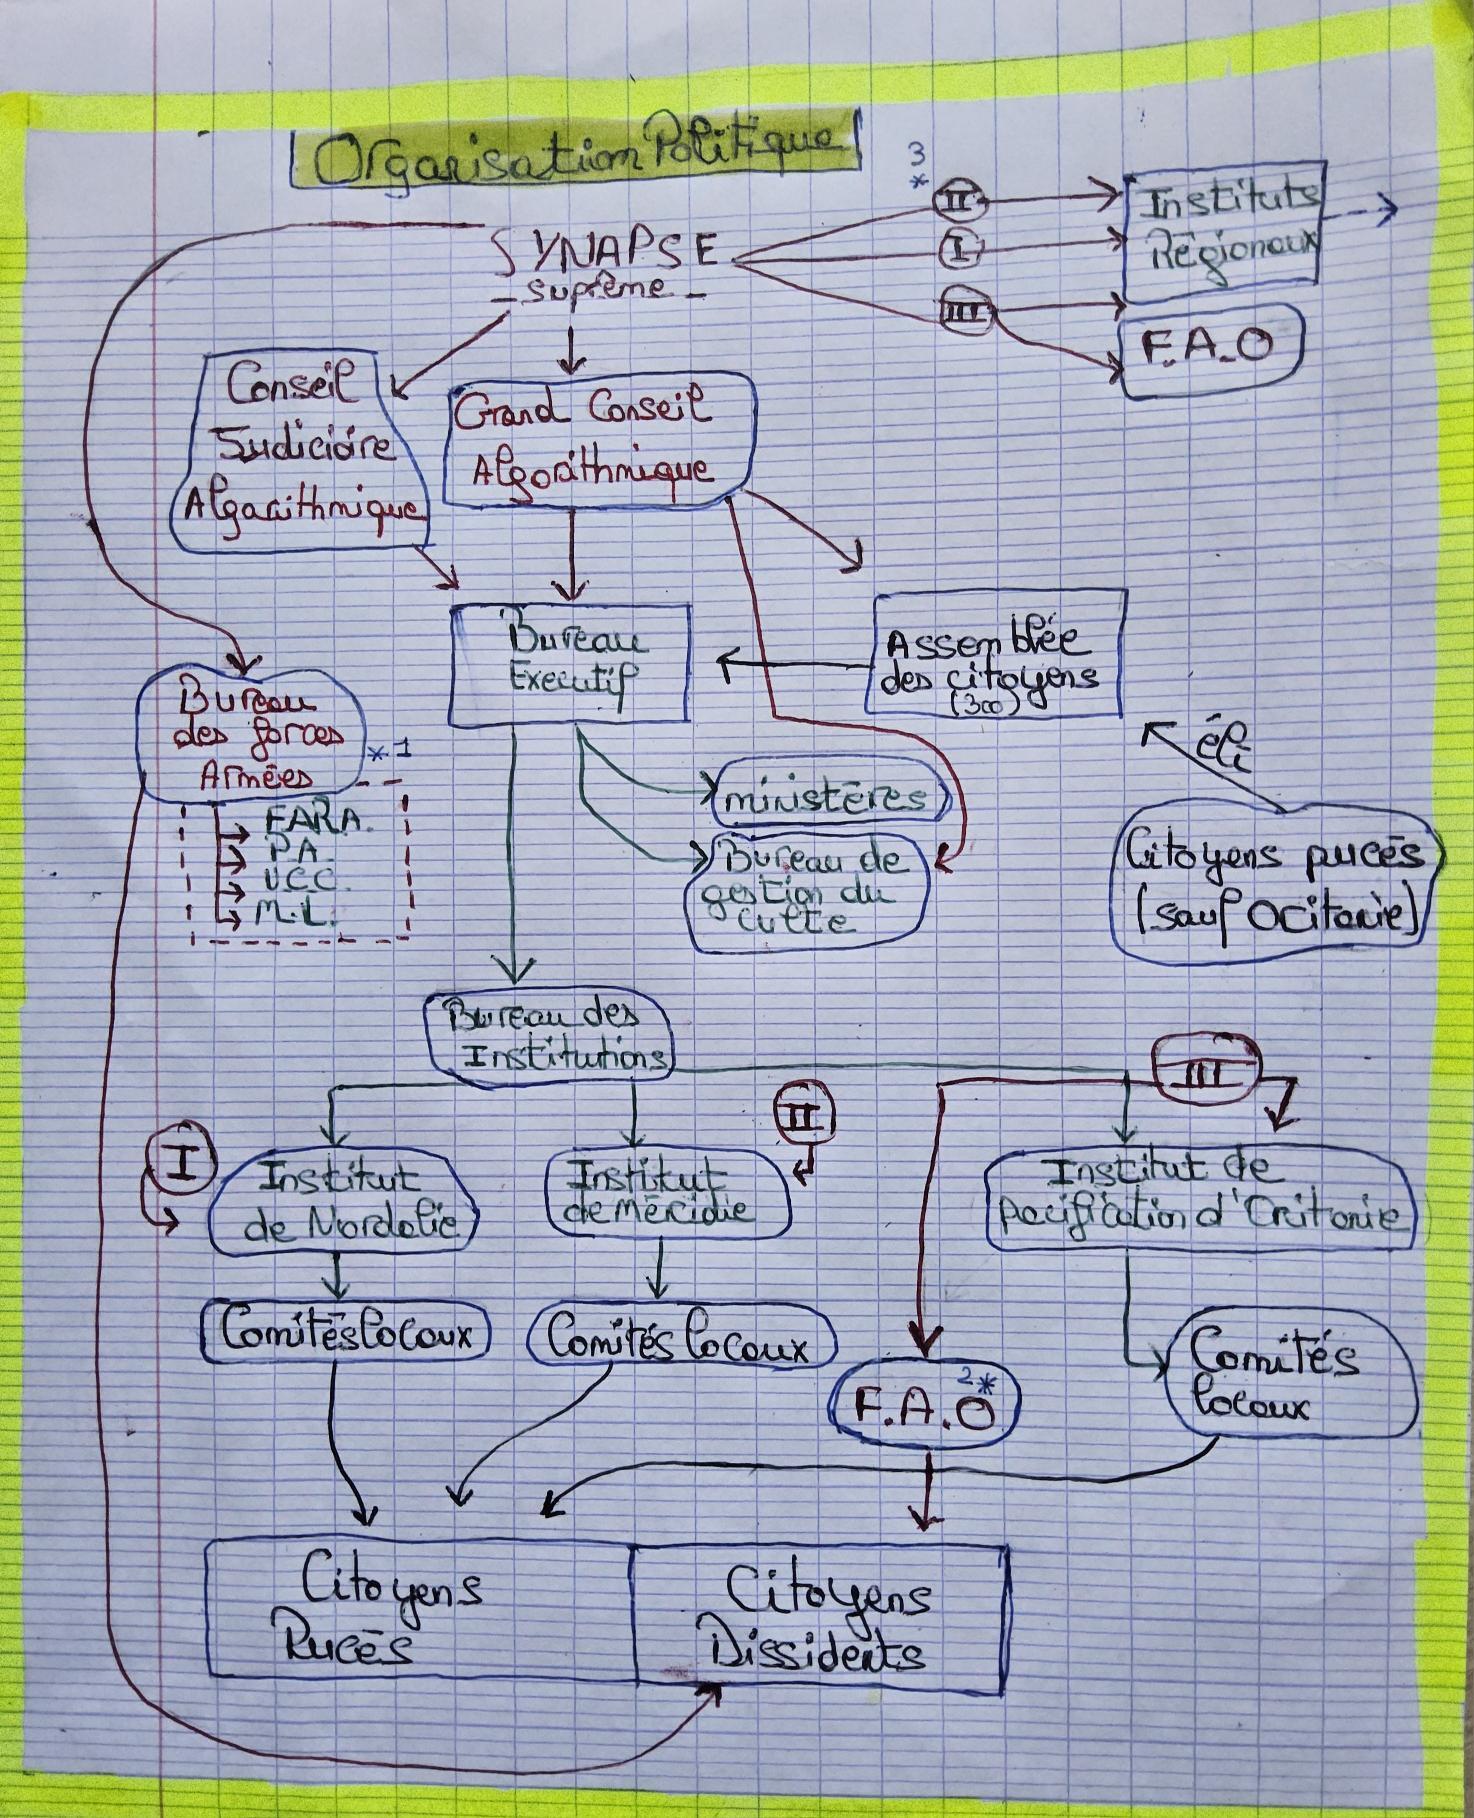 Organisation Politique
3
*
II
Instituts
SYNAPSE
I
Régionaux
_ suprême _
III
F.A.O
Conseil
Judiciaire
Algorithmique
Grand Conseil
Algorithmique
Bureau
Executif
Assemblée
des citoyens
(300)
Bureau
des forces
Armées
* 1
éli
FARA.
P.A.
U.C.C.
M.L.
ministères
Bureau de
gestion du
Culte
Citoyens pucés
(sauf Ocitanie)
Bureau des
Institutions
III
II
I
Institut
de Nordalie
Institut
de méridie
Institut de
pacification d'Ocitanie
Comités locaux
Comités locaux
Comités
locaux
2*
F.A.O
Citoyens
Pucés
Citoyens
Dissidents